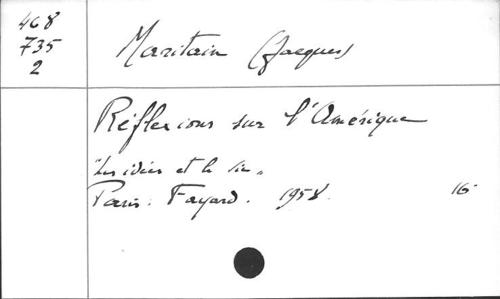 468
735
2
Maritain (Jacques)
Réflexions sur l'Amérique
"Les idées et la vie"
Paris. Fayard. 1958. 16-